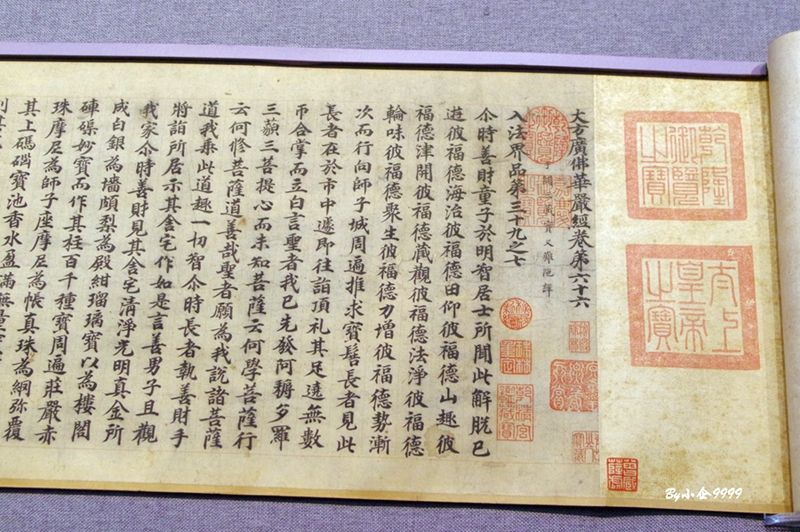 乾隆御覽之寶
太上皇帝之寶
大方廣佛華嚴經卷第六十六
三藏實叉難陀譯
入法界品第三十九之七
尒時善財童子於明智居士所聞此解脫已
遊彼福德海治彼福德田仰彼福德山趣彼
福德津開彼福德藏觀彼福德法淨彼福德
輪味彼福德聚生彼福德力增彼福德勢漸
次而行向師子城周遍推求寶髻長者見此
長者在於市中遽即往詣頂礼其足遶無數
帀合掌而立白言聖者我已先發阿耨多羅
三藐三菩提心而未知菩薩云何學菩薩行
云何修菩薩道善哉聖者願為我說諸菩薩
道我乘此道趣一切智尒時長者執善財手
將詣所居示其舍宅作如是言善男子且觀
我家尒時善財見其舍宅清淨光明真金所
成白銀為墻頗梨為殿紺瑠璃寶以為樓閣
硨磲妙寶而作其柱百千種寶周遍莊嚴赤
珠摩尼為師子座摩尼為帳真珠為網弥覆
其上碼碯寶池香水盈滿無量
By小企9999